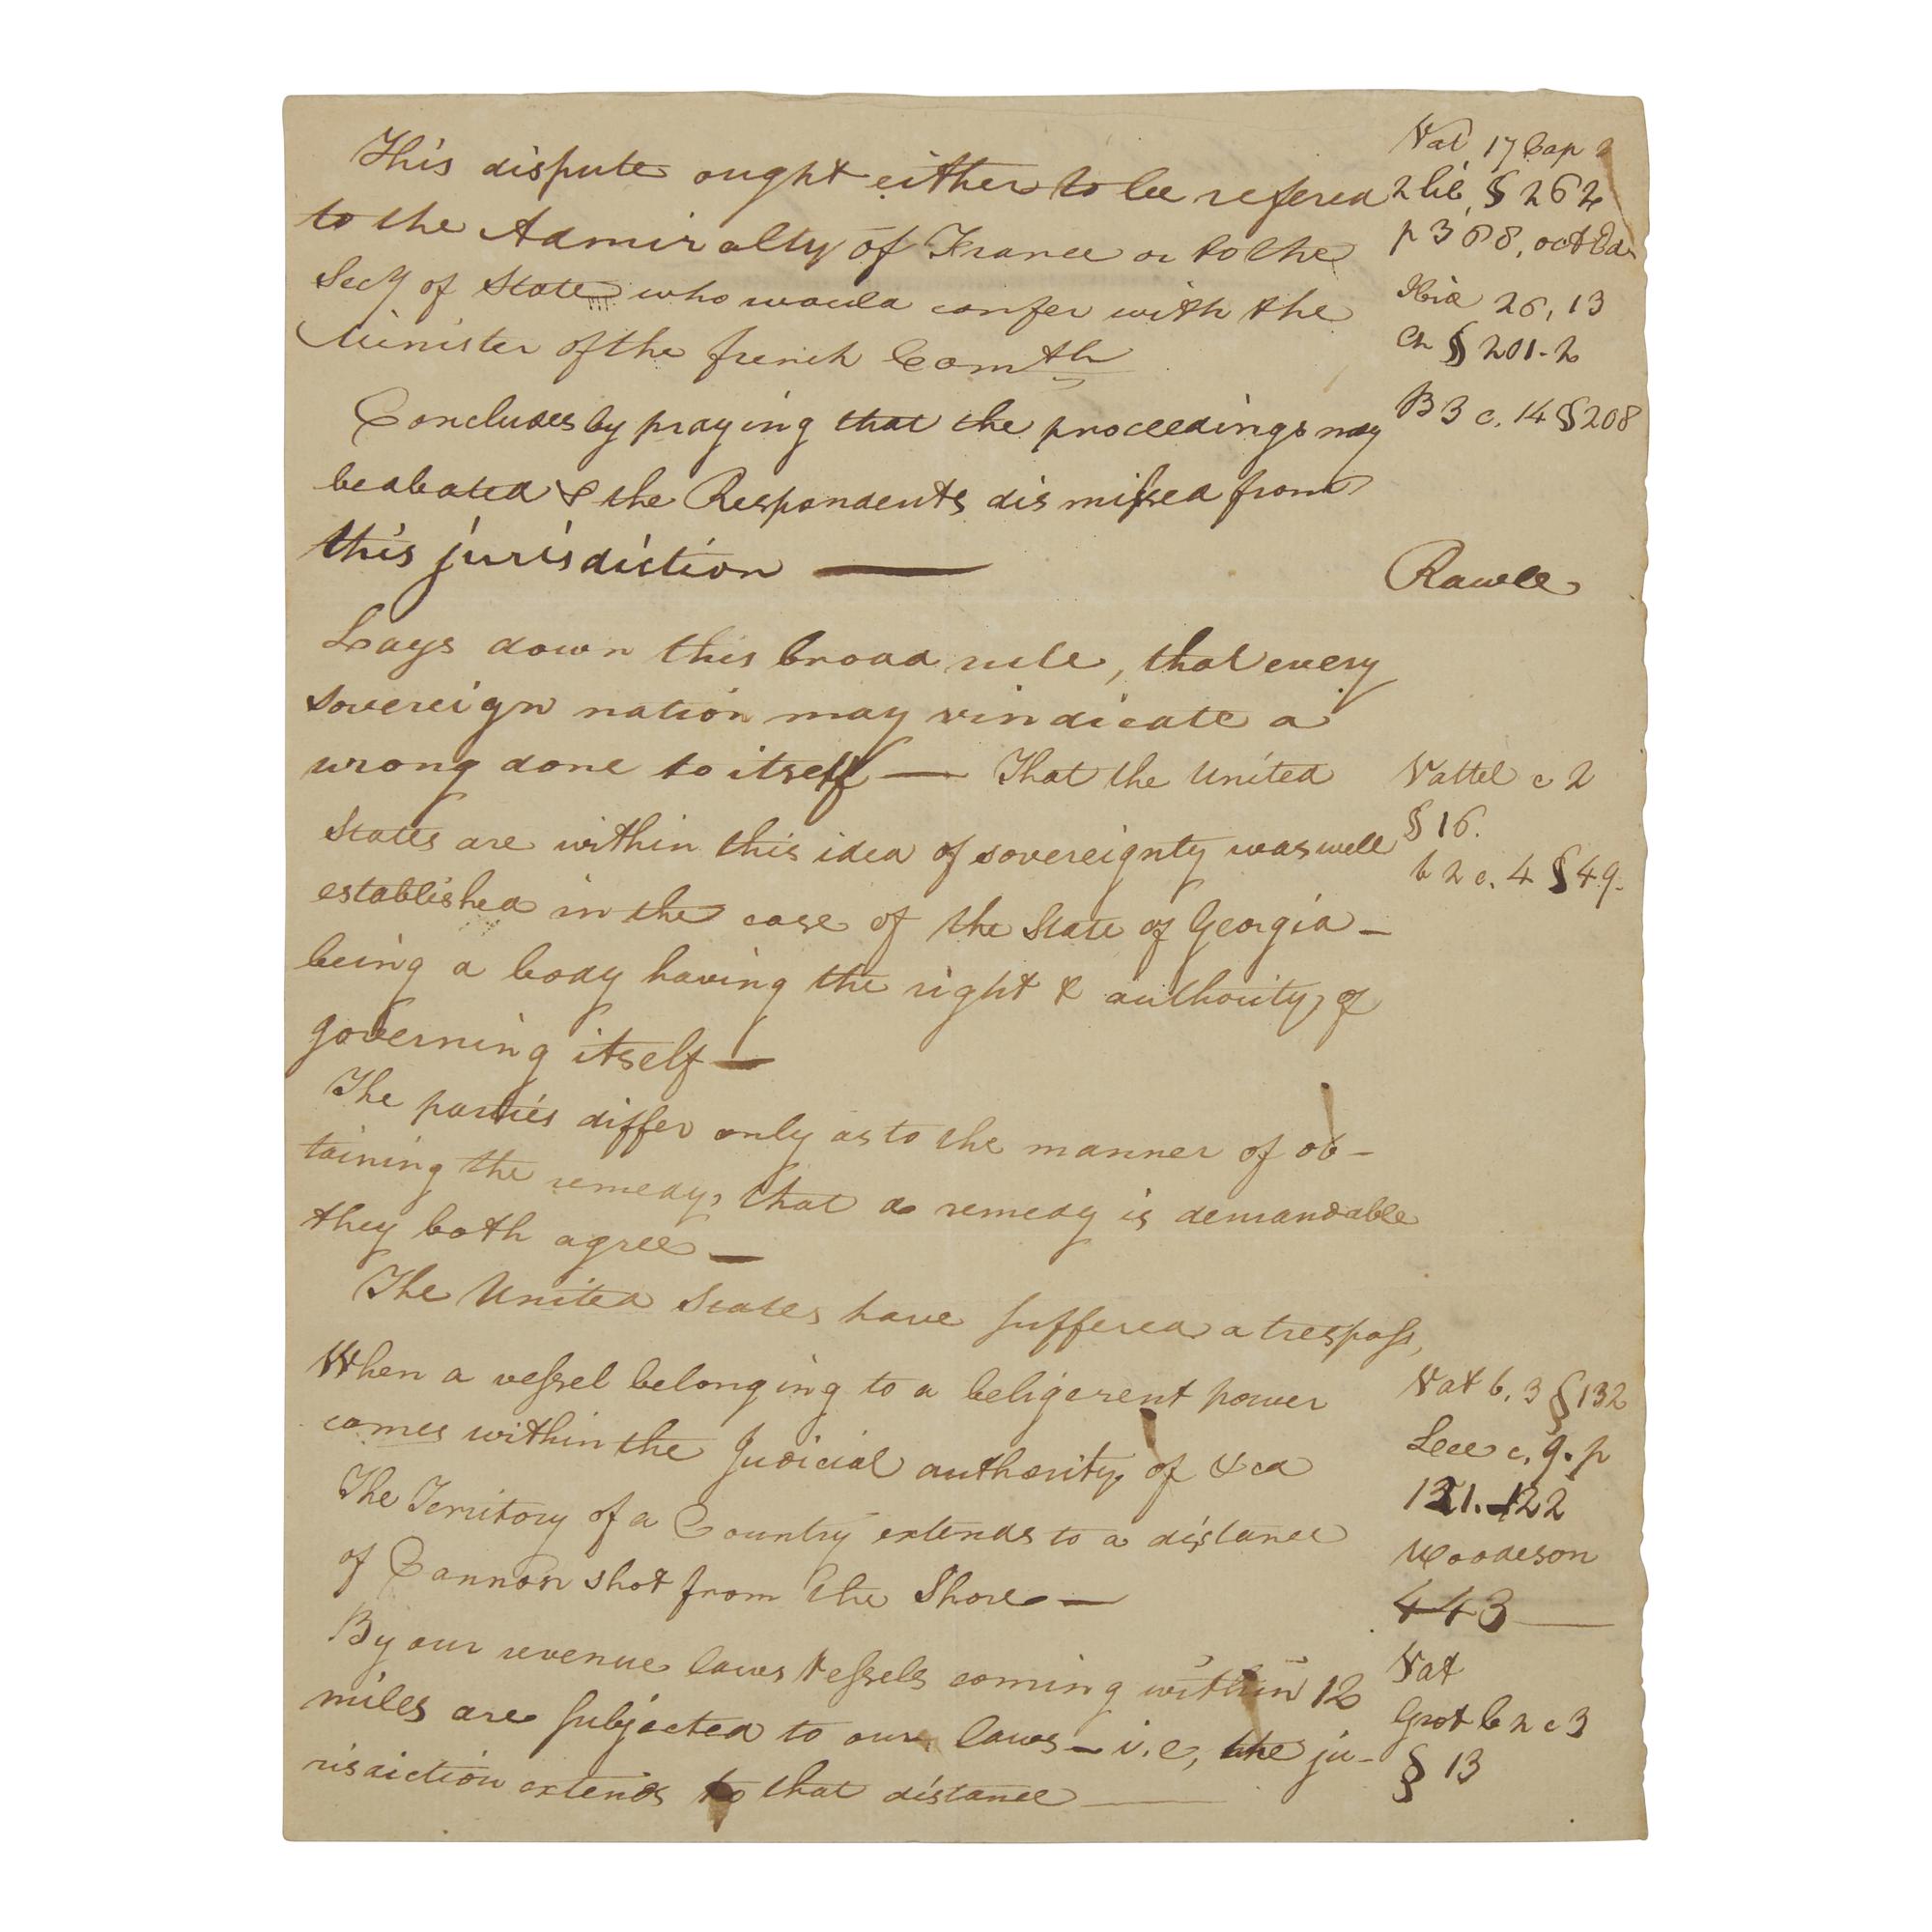 This dispute ought either to be refered
to the Admiralty of France or to the
Secy of State who would confer with the
Minister of the french Comth
Concludes by praying that the proceedings may
be abated & the Respondents dismissed from
this jurisdiction —
Lays down this broad rule, that every
sovereign nation may vindicate a
wrong done to itself — That the United
States are within this idea of sovereignty was well
established in the case of the State of Georgia —
being a body having the right & authority of
governing itself —
The parties differ only as to the manner of ob-
taining the remedy, that a remedy is demandable
they both agree —
The United States have suffered a trespass,
When a vessel belonging to a beligerent power
comes within the Judicial authority of &ca
The Territory of a Country extends to a distance
of Cannon shot from the Shore —
By our revenue laws Vessels coming within 12
miles are subjected to our laws — i.e, the ju-
risdiction extends to that distance —
Vat 17 Cap
2 lib, § 262
p 368, oct Ed
Ibid 26, 13
Ch § 201-2
B 3 c. 14 § 208
Rawle
Vattel c 2
§ 16.
b 2 c. 4 § 49.
Vat b. 3 § 132
Lee c. 9. p
121. 122
Woodeson
443 —
Vat
Grot b 2 c 3
§ 13